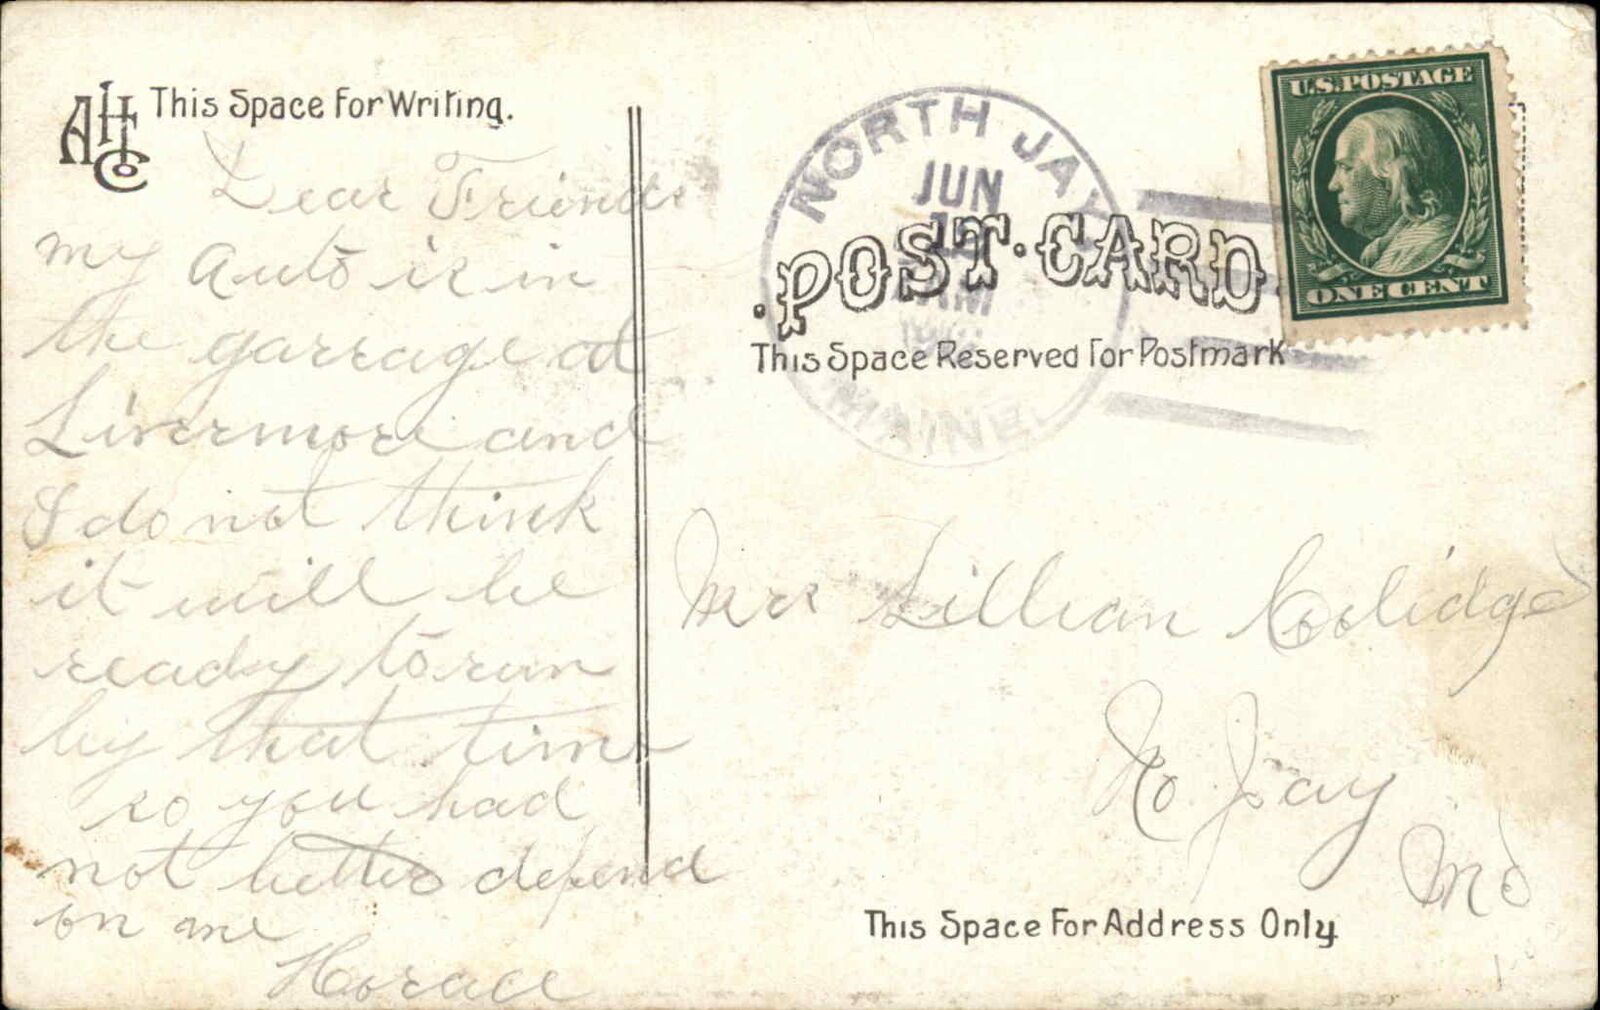 AHCo
This Space For Writing.
Dear Friends
my Auto is in
the garrage at
Livermore and
I do not think
it will be
ready to run
by that time
so you had
not better depend
on me
Horace
NORTH JAY
JUN
AM
MAINE
POST CARD
This Space Reserved For Postmark
U.S. POSTAGE
ONE CENT
Mrs Lillian Coolidge
No Jay
Me
This Space For Address Only